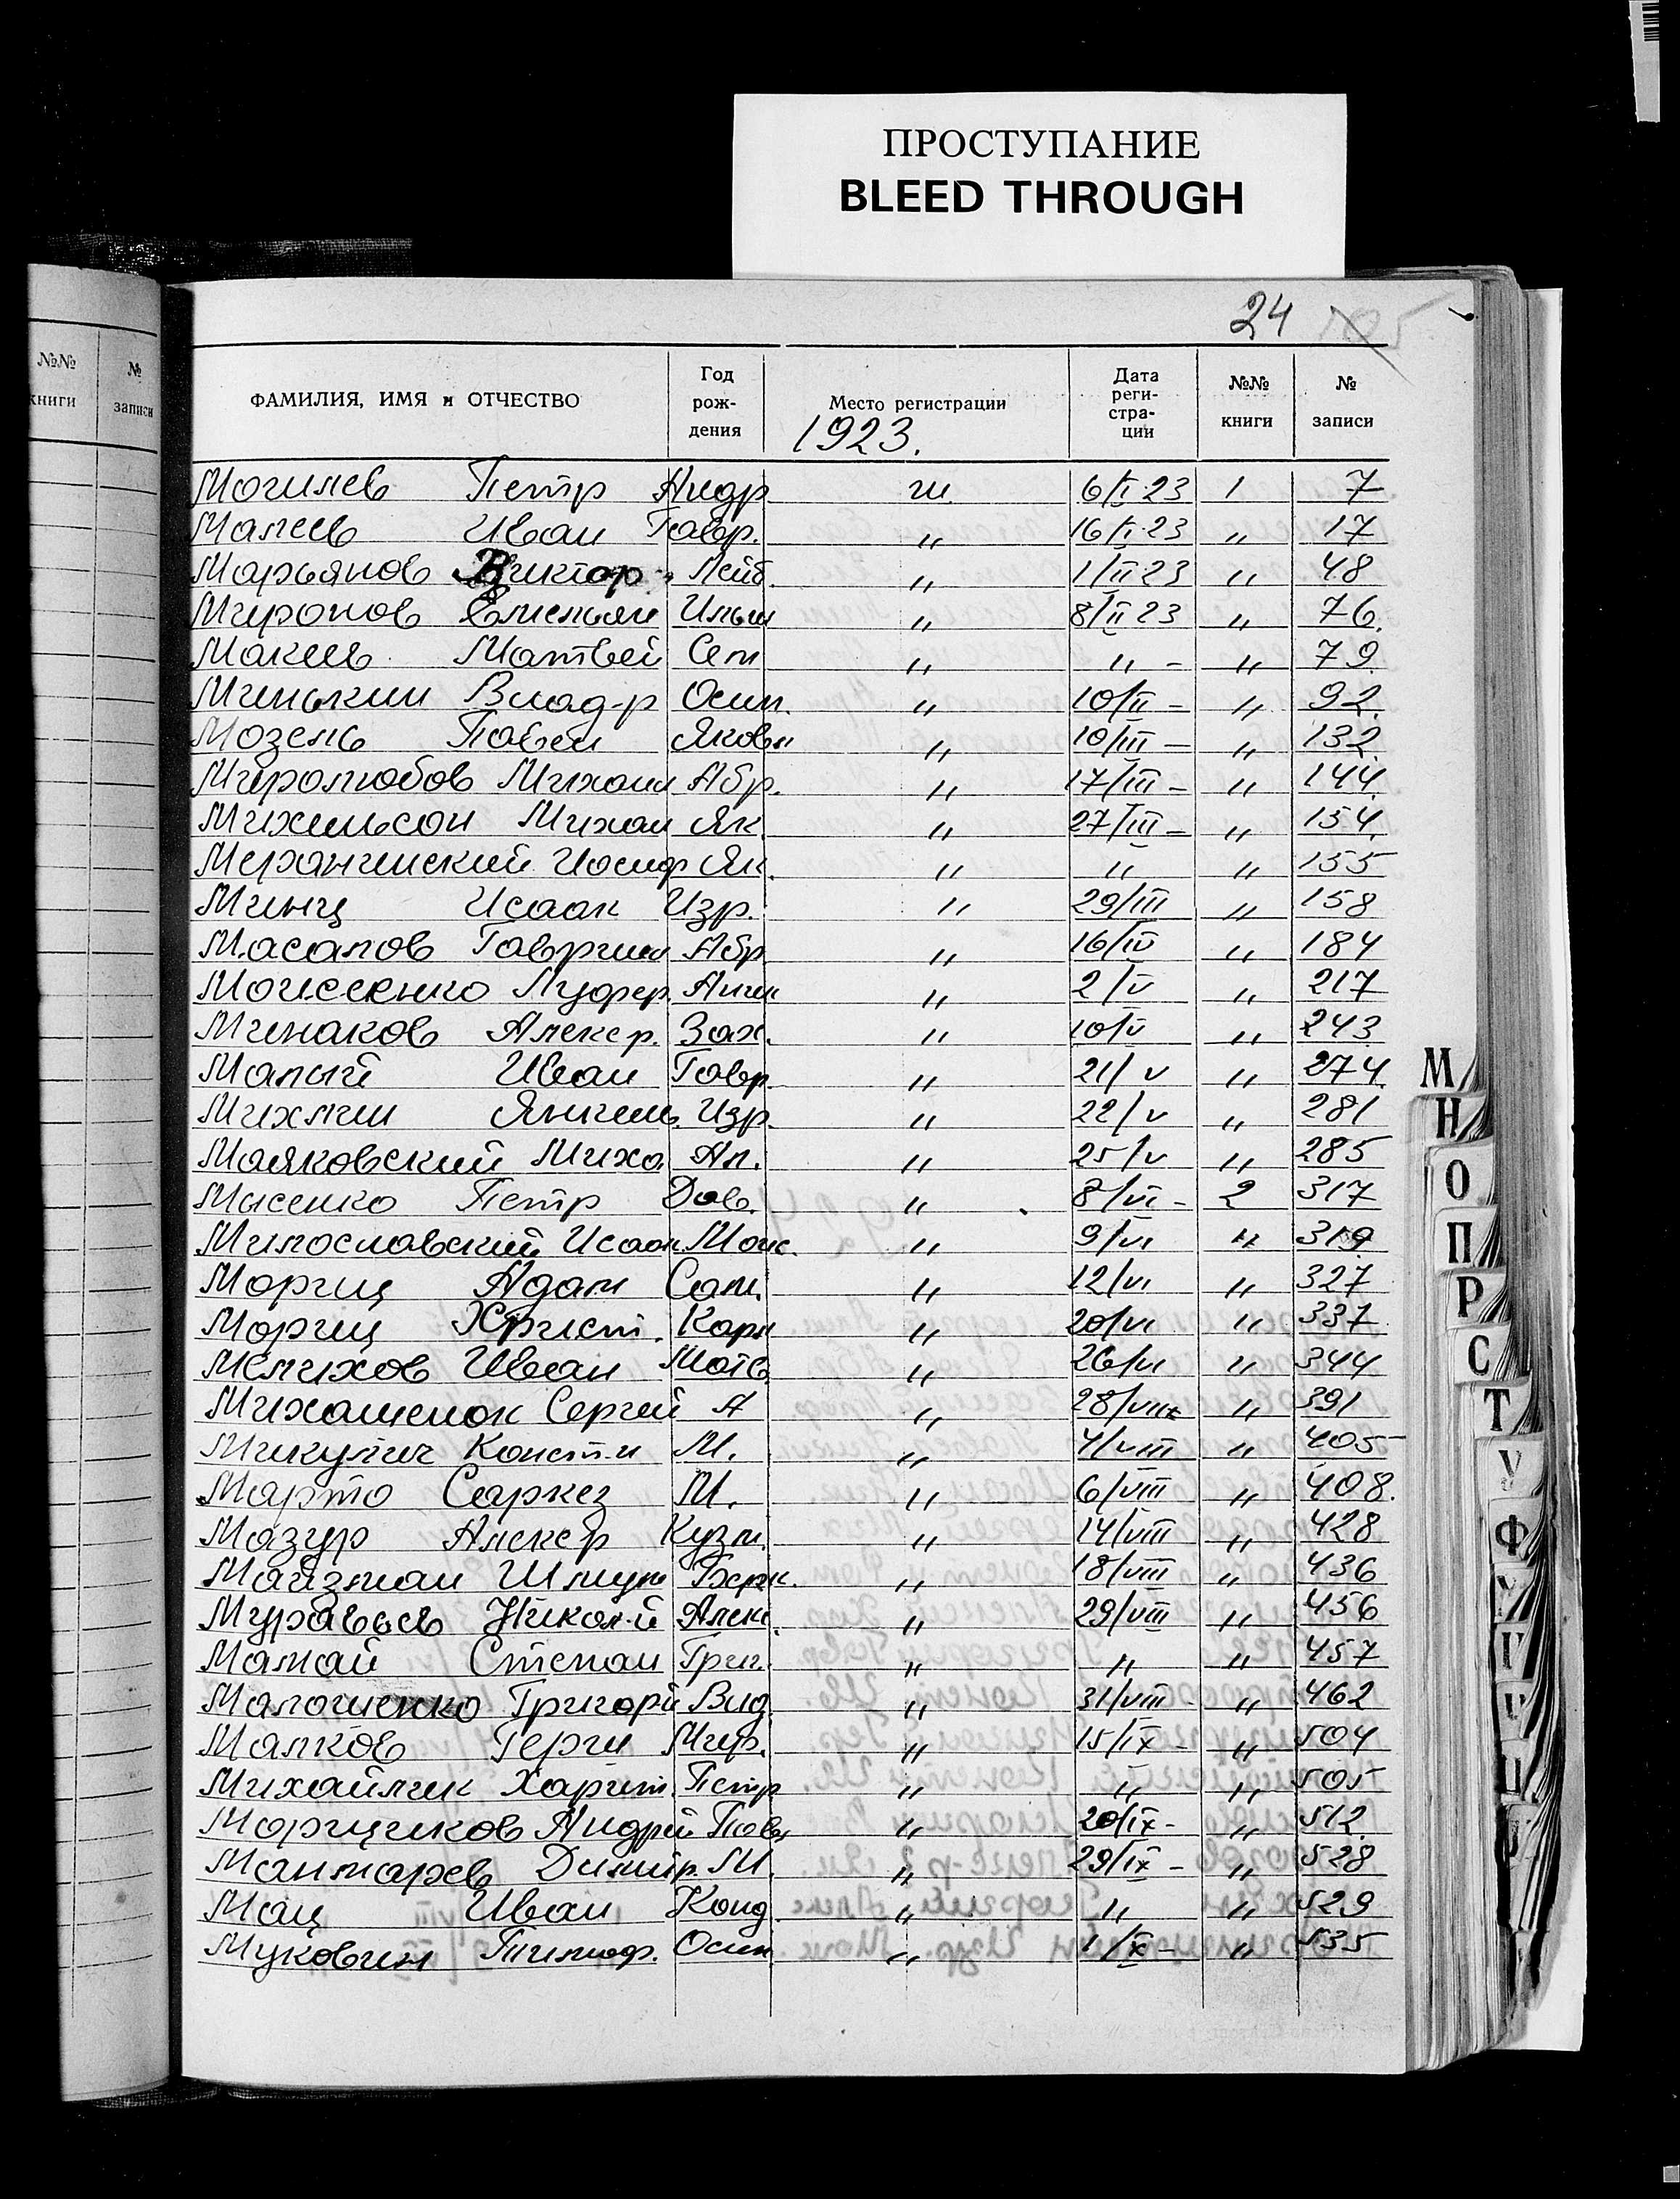 ПРОСТУПАНИЕ
BLEED THROUGH
24
№№ книги № записи
ФАМИЛИЯ, ИМЯ и ОТЧЕСТВО Год рож-дения Место регистрации 1923. Дата реги-стра-ции №№ книги № записи
Могилев Петр Андр. ги 6/I 23 1 7
Малеев Иван Гавр. " 16/I 23 " 17
Марьянов Виктор Лейб. " 1/II 23 " 48
Миронов Емельян Ильи " 8/II 23 " 76
Макеев Матвей Сем " " - " 79
Минькин Влад-р Осип. " 10/II - " 92
Мозель Павел Яковл " 10/III - " 132
Миролюбов Михаил Абр. " 17/III - " 144
Михельсон Михаи Як. " 27/III - " 154
Иосиф Як. " " " 155
Минц Исаак Изр. " 29/III " 158
Масалов Гавриил Абр " 16/IV " 184
Моисеенко " 2/V " 217
Минаков Алекср. Зах. " 10/V " 243
Малый Иван Гавр. " 21/V " 274
Михлин Янкель Изр. " 22/V " 281
Маяковский Миха Ал. " 25/V " 285
Мысенко Петр Дав. " 8/VI - 2 317
Милославский Исаак Моис. " 9/VI " 319
Мориц Адам Сам. " 12/VI " 327
Мориц Христ. Карл " 20/VI " 337
Мелихов Иван Матв. " 26/VI " 344
Михаленок Сергей А " 28/VII " 391
Микулич Конст-н М. " 4/VIII " 405
Марто Саркез М. " 6/VIII " 408.
Мазур Алекср Кузм. " 14/VIII " 428
Майзман Шмул Берк. " 18/VIII " 436
Муравьев Никол-й Алек. " 29/VIII " 456
Мамай Степан Григ. " " " 457
Григори Влад. " 31/VIII - " 462
Малков Герги Мир. " 15/IX - " 504
Михайлик Харит. Петр " " " 505
Морщиков Андрей Павл " 20/IX - " 512
Димитр. М. " 29/IX - " 528
Мац Иван Конд. " " " 529
Муковин Тимоф. Осип " 1/X - " 535
М
Н
О
П
Р
С
Т
У
Ф